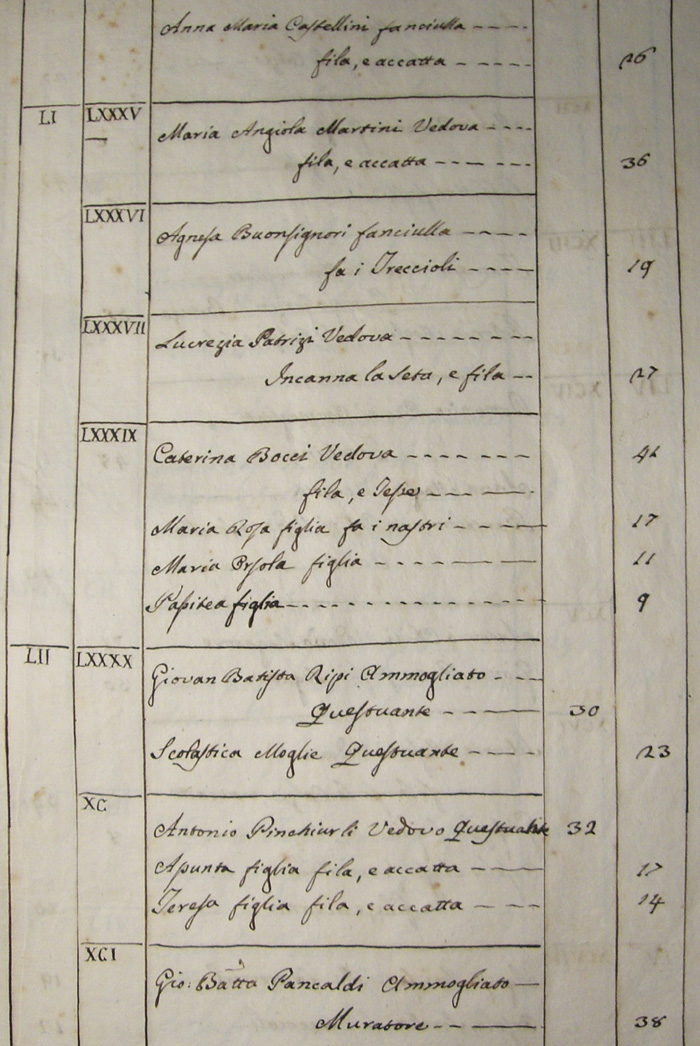 Anna Maria Castellini fanciulla
fila, e accatta 26
LI LXXXV Maria Angiola Martini Vedova
fila, e accatta 36
LXXXVI Agnesa Buonsignori fanciulla
fa i Treccioli 19
LXXXVII Lucrezia Patrizi Vedova
Incanna la Seta, e fila 27
LXXXIX Caterina Bocci Vedova
fila, e Tesse
Maria Rosa figlia fa i nastri 17
Maria Orsola figlia 11
figlia 9
LII LXXXX Giovan Batista Ripi Ammogliato
Questuante 30
Scolastica Moglie Questuante 23
XC Antonio Pinchiurli Vedovo Questuante 32
Assunta figlia fila, e accatta 17
Teresa figlia fila, e accatta 14
XCI Gio: Batta Pancaldi Ammogliato
Muratore 38